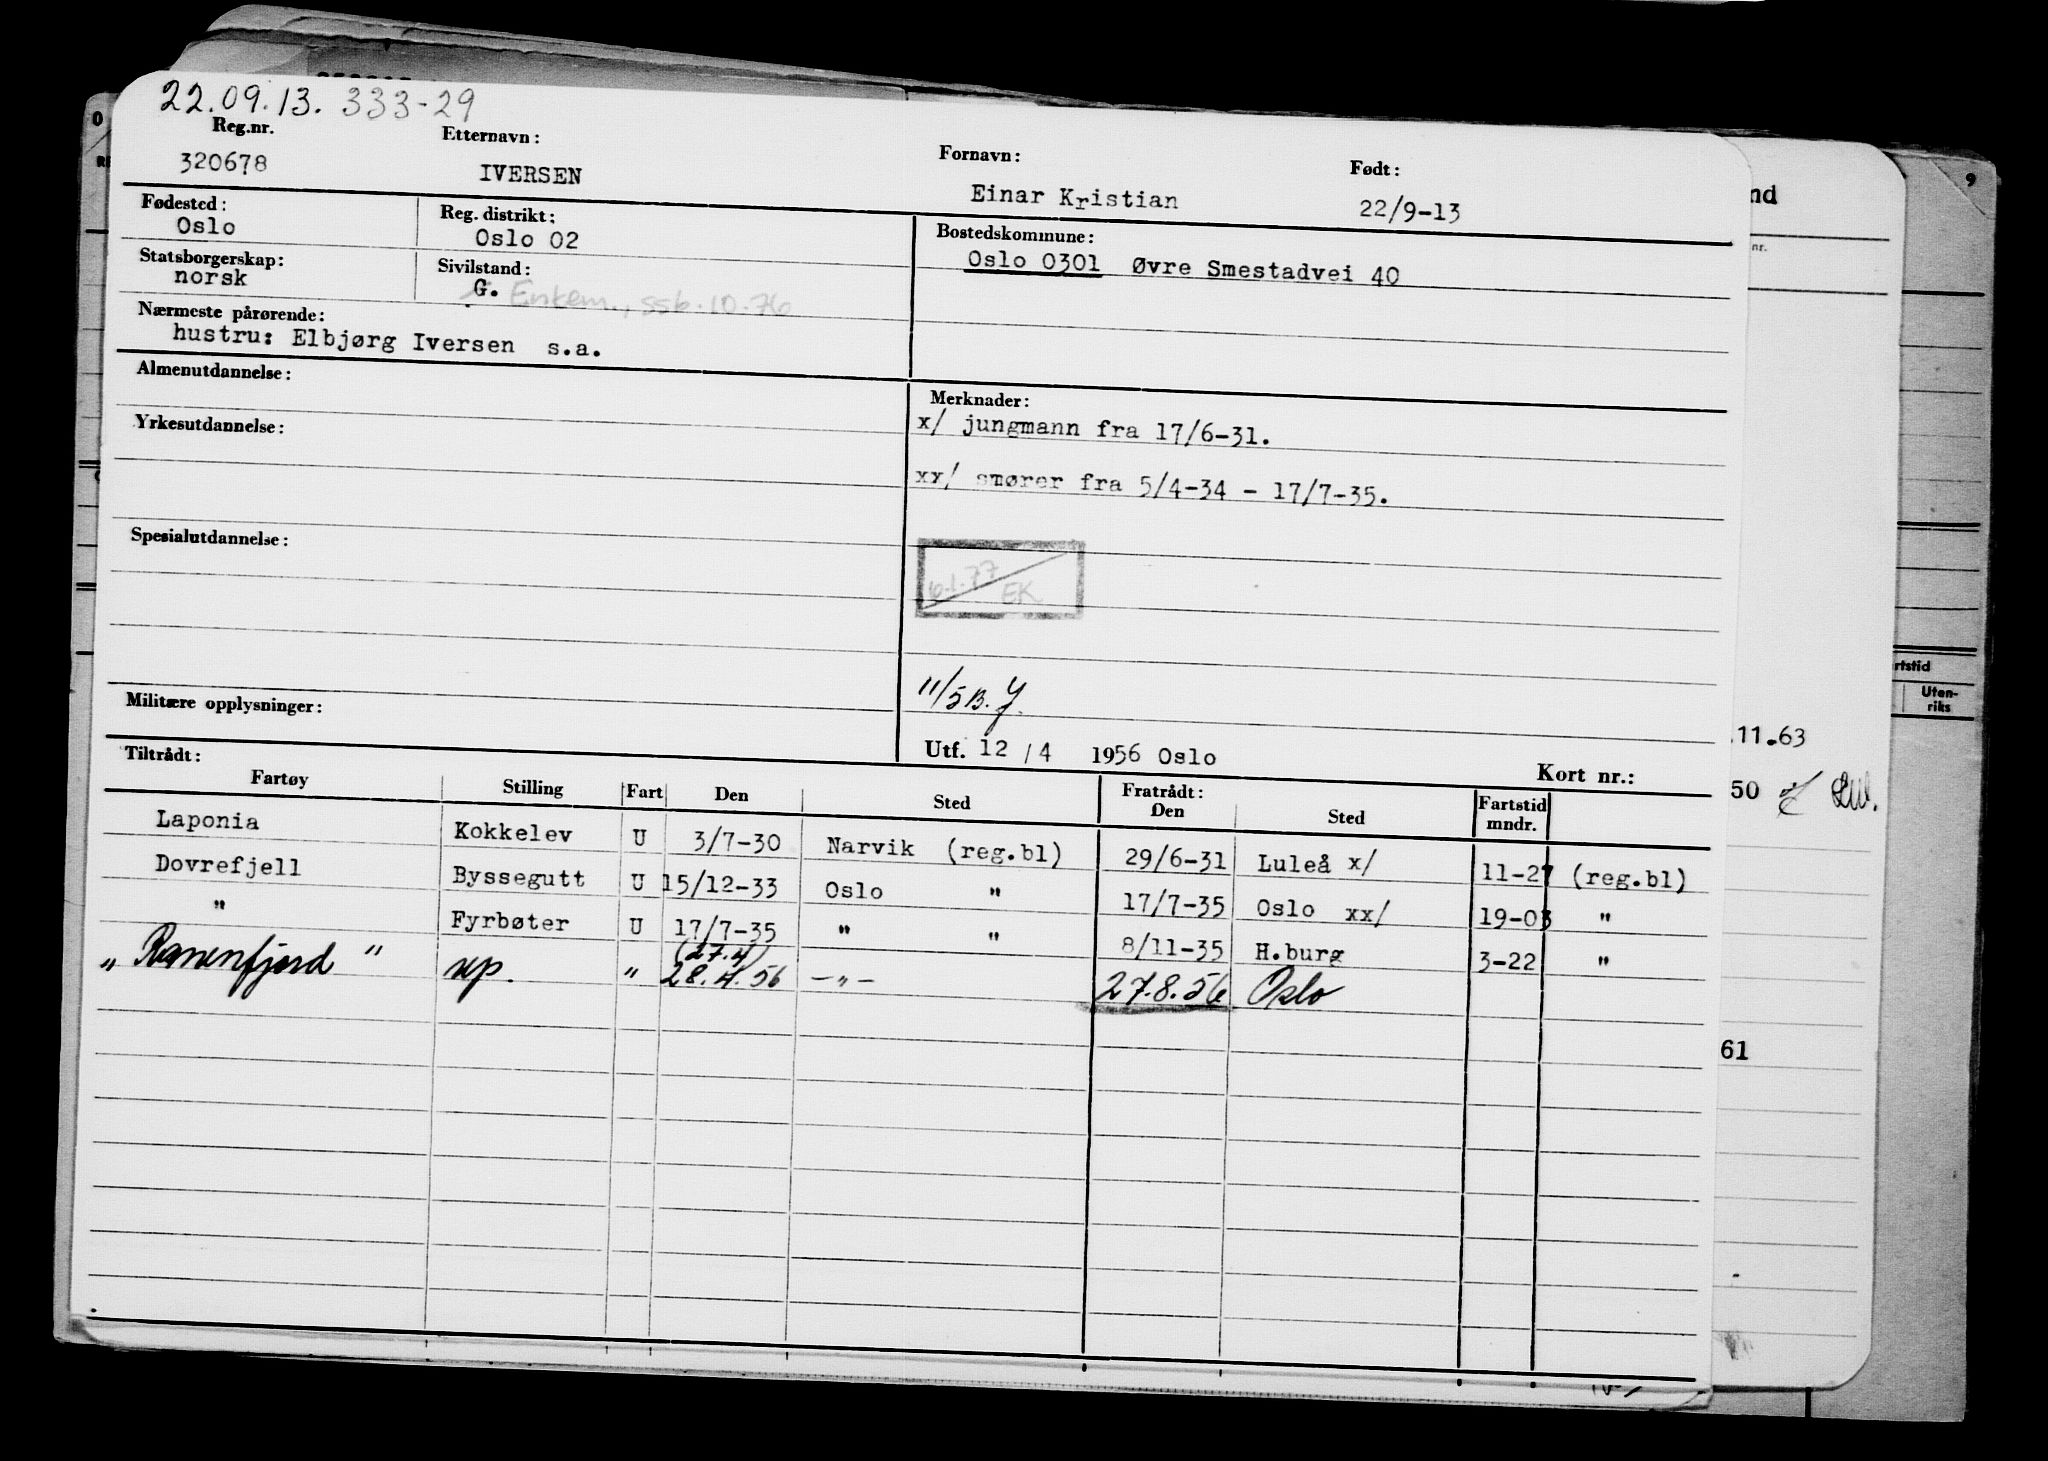 22.09.13. 333-29
Reg.nr. Etternavn: Fornavn: Født:
320678 IVERSEN Einar Kristian 22/9-13
Fødested: Reg. distrikt: Bostedskommune:
Oslo Oslo 02 Oslo 0301 Øvre Smestadvei 40
Statsborgerskap: Sivilstand:
norsk G. Enkem., ssb.10.76
Nærmeste pårørende:
hustru: Elbjørg Iversen s.a.
Almenutdannelse:
Merknader:
x/ jungmann fra 17/6-31.
Yrkesutdannelse:
xx/ smører fra 5/4-34 - 17/7-35.
Spesialutdannelse:
6.1.77 EK
11/5 B.J.
Militære opplysninger:
Utf. 12 / 4 1956 Oslo Kort nr.:
Tiltrådt: Fratrådt:
Fartøy Stilling Fart Den Sted Den Sted Fartstid mndr.
Laponia Kokkelev U 3/7-30 Narvik (reg.bl) 29/6-31 Luleå x/ 11-27 (reg.bl)
Dovrefjell Byssegutt U 15/12-33 Oslo " 17/7-35 Oslo xx/ 19-03 "
" Fyrbøter U 17/7-35 " " 8/11-35 H.burg 3-22 "
(27.4)
" Ranenfjord " rep. " 28.4.56 -"- 27.8.56 Oslo
9
nd
nr.
rtstid
Uten-
riks
.11.63
50
61